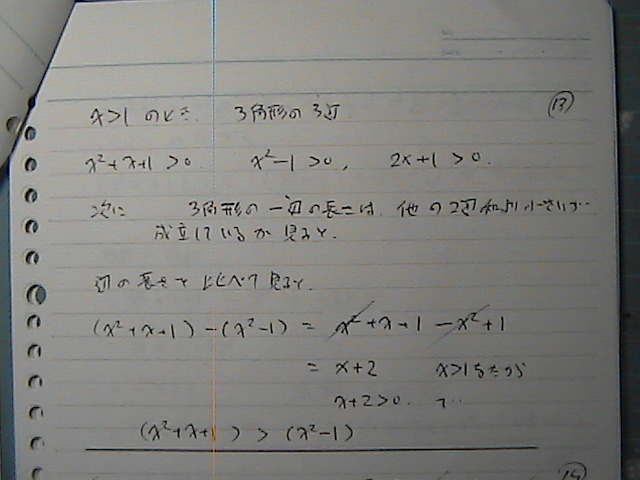 ⑬
x>1 のとき 3角形の3辺
x²+x+1>0. x²-1>0, 2x+1>0.
次に 3角形の一辺の長さは、他の2辺の和より小さいが
成立しているか 見ると.
辺の長さを比べて見ると.
(x²+x+1)-(x²-1) = x²+x+1-x²+1
= x+2 x>1だから
x+2>0. で
(x²+x+1)>(x²-1)